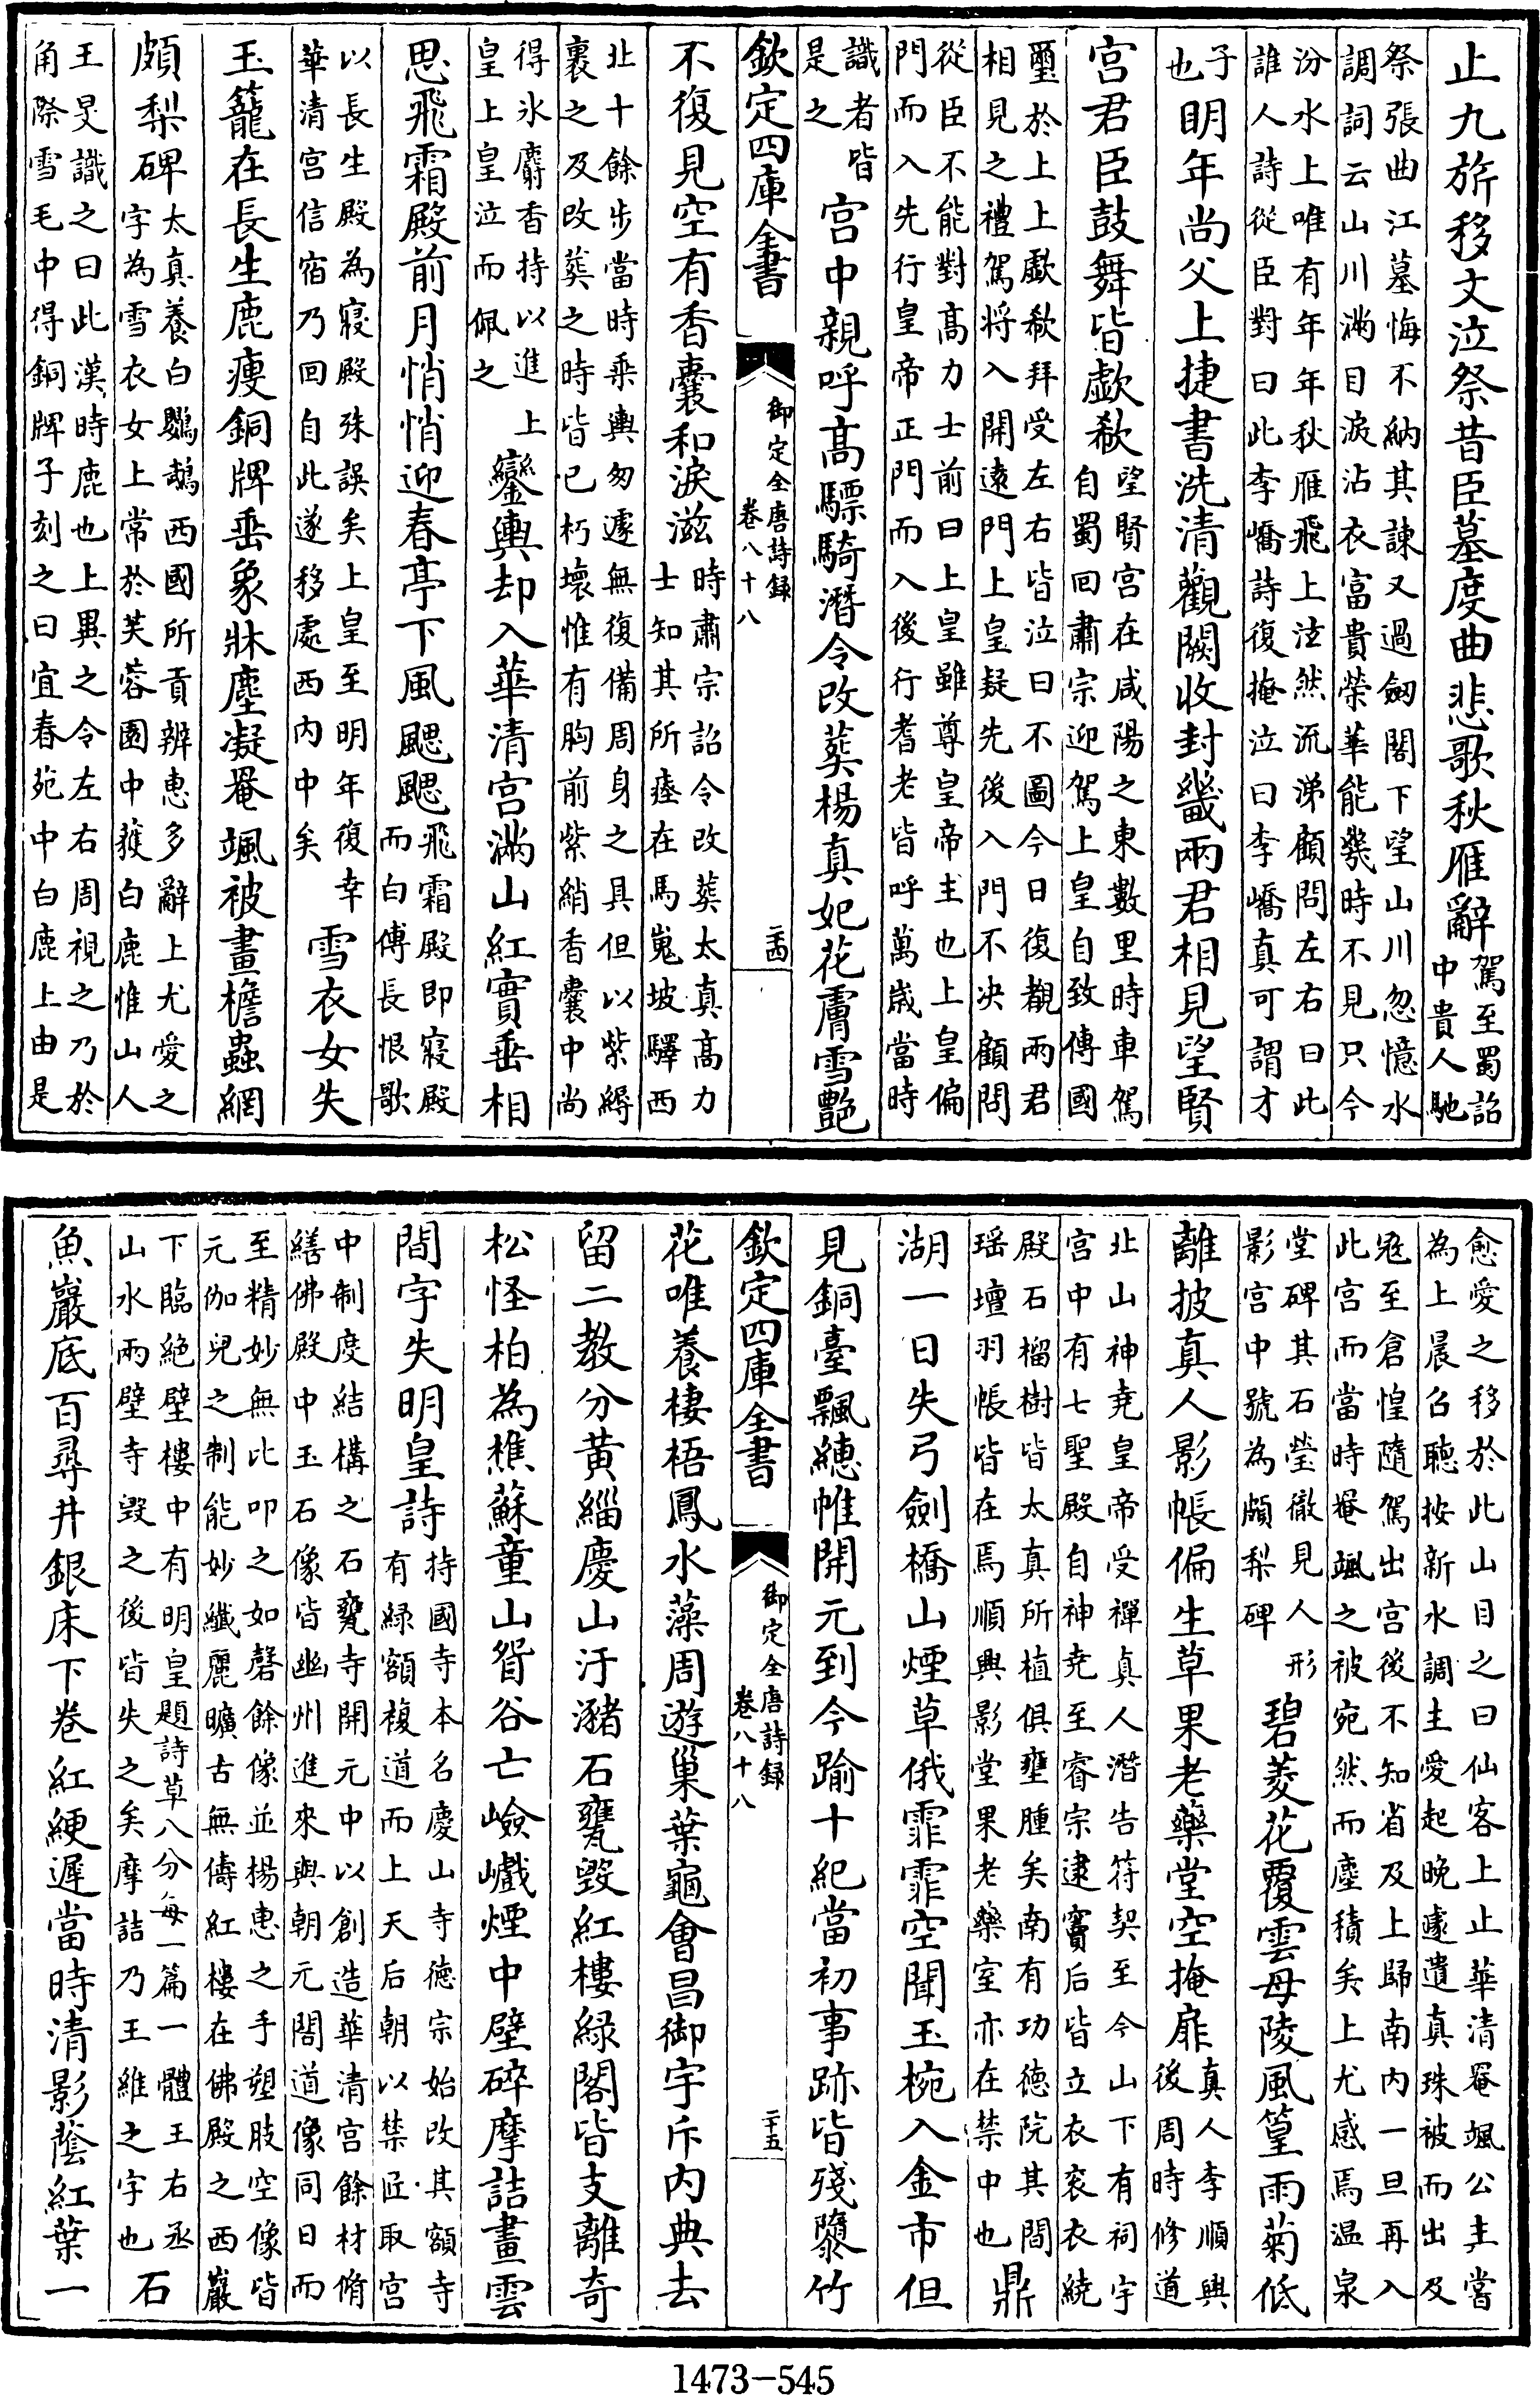 止九旂移文泣祭昔臣墓度曲悲歌秋雁辭
駕至蜀詔
中貴人馳
祭張曲江墓悔不納其諫又過劒閣下望山川忽憶水
調詞云山川滿目淚沾衣富貴榮華能幾時不見只今
汾水上唯有年年秋雁飛上泫然流涕顧問左右曰此
誰人詩從臣對曰此李嶠詩復掩泣曰李嶠真可謂才
子
也
明年尚父上捷書洗清觀闕收封畿兩君相見望賢
宫君臣鼓舞皆歔欷
望賢宫在咸陽之東數里時車駕
自蜀回肅宗迎駕上皇自致傳國
璽於上上歔欷拜受左右皆泣曰不圖今日復覩兩君
相見之禮駕將入開逺門上皇疑先後入門不决顧問
從臣不能對髙力士前曰上皇雖尊皇帝主也上皇偏
門而入先行皇帝正門而入後行耆老皆呼萬歳當時
識者皆
是之
宫中親呼髙驃騎潛令改葬楊真妃花膚雪艶
欽定四庫全書
御定全唐詩録
卷八十八
二十四
不復見空有香囊和淚滋
時肅宗詔令改葬太真髙力
士知其所瘞在馬嵬坡驛西
北十餘步當時乗輿匆遽無復備周身之具但以紫縟
裹之及改葬之時皆已朽壊惟有胸前紫綃香囊中尚
得氷麝香持以進上
皇上皇泣而佩之
鑾輿却入華清宫滿山紅實垂相
思飛霜殿前月悄悄迎春亭下風颸颸
飛霜殿即寢殿
而白傅長恨歌
以長生殿為寢殿殊誤矣上皇至明年復幸
華清宫信宿乃回自此遂移處西内中矣
雪衣女失
玉籠在長生鹿瘦銅牌垂象牀塵凝罨颯被畫檐蟲網
頗梨碑
太真養白鸚鵡西國所貢辨惠多辭上尤愛之
字為雪衣女上常於芙蓉園中獲白鹿惟山人
王旻識之曰此漢時鹿也上異之令左右周視之乃於
角際雪毛中得銅牌子刻之曰宜春苑中白鹿上由是
愈愛之移於此山目之曰仙客上止華清罨颯公主嘗
為上晨召聽按新水調主愛起晚遽遣真珠被而出及
寇至倉惶隨駕出宫後不知省及上歸南内一旦再入
此宫而當時罨颯之被宛然而塵積矣上尤感焉温泉
堂碑其石瑩徹見人形
影宫中號為頗梨碑
碧菱花覆雲母陵風篁雨菊低
離披真人影帳偏生草果老藥堂空掩扉
真人李順興
後周時修道
北山神堯皇帝受禪真人潛告符契至今山下有祠宇
宫中有七聖殿自神堯至睿宗逮竇后皆立衣衮衣繞
殿石榴樹皆太真所植俱壅腫矣南有功德院其間
瑶壇羽帳皆在焉順興影堂果老藥室亦在禁中也
鼎
湖一日失弓劍橋山煙草俄霏霏空聞玉椀入金市但
見銅臺飄繐帷開元到今踰十紀當初事跡皆殘隳竹
欽定四庫全書
御定全唐詩録
卷八十八
二十五
花唯養棲梧鳳水藻周遊巢葉龜會昌御宇斥内典去
留二教分黄緇慶山汙瀦石甕毁紅樓綠閣皆支離奇
松怪柏為樵蘇童山眢谷亡嶮巇煙中壁碎摩詰畫雲
間字失明皇詩
持國寺本名慶山寺德宗始改其額寺
有緑額複道而上天后朝以禁匠取宫
中制度結構之石甕寺開元中以創造華清宫餘材脩
繕佛殿中玉石像皆幽州進來與朝元閣道像同日而
至精妙無比叩之如磬餘像並楊惠之手塑肢空像皆
元伽兒之制能妙纖麗曠古無儔紅樓在佛殿之西巖
下臨絶壁樓中有明皇題詩草八分每一篇一體王右丞
山水兩壁寺毁之後皆失之矣摩詰乃王維之字也
石
魚巖底百尋井銀床下卷紅綆遲當時清影蔭紅葉一
1473-545